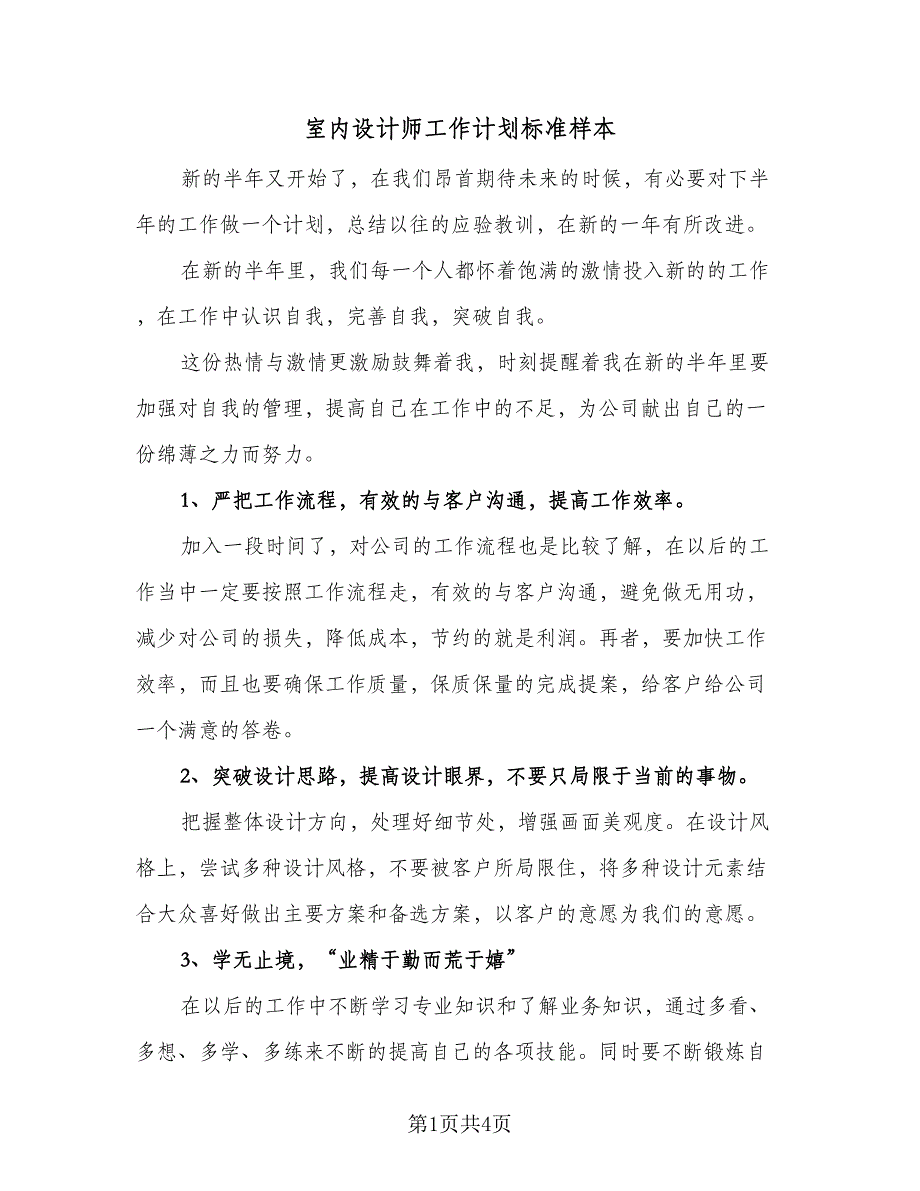 室内设计师工作计划标准样本
新的半年又开始了，在我们昂首期待未来的时候，有必要对下半
年的工作做一个计划，总结以往的应验教训，在新的一年有所改进。
在新的半年里，我们每一个人都怀着饱满的激情投入新的的工作
，在工作中认识自我，完善自我，突破自我。
这份热情与激情更激励鼓舞着我，时刻提醒着我在新的半年里要
加强对自我的管理，提高自己在工作中的不足，为公司献出自己的一
份绵薄之力而努力。
1、严把工作流程，有效的与客户沟通，提高工作效率。
加入一段时间了，对公司的工作流程也是比较了解，在以后的工
作当中一定要按照工作流程走，有效的与客户沟通，避免做无用功，
减少对公司的损失，降低成本，节约的就是利润。再者，要加快工作
效率，而且也要确保工作质量，保质保量的完成提案，给客户给公司
一个满意的答卷。
2、突破设计思路，提高设计眼界，不要只局限于当前的事物。
把握整体设计方向，处理好细节处，增强画面美观度。在设计风
格上，尝试多种设计风格，不要被客户所局限住，将多种设计元素结
合大众喜好做出主要方案和备选方案，以客户的意愿为我们的意愿。
3、学无止境，“业精于勤而荒于嬉”
在以后的工作中不断学习专业知识和了解业务知识，通过多看、
多想、多学、多练来不断的提高自己的各项技能。同时要不断锻炼自
第1页共4页